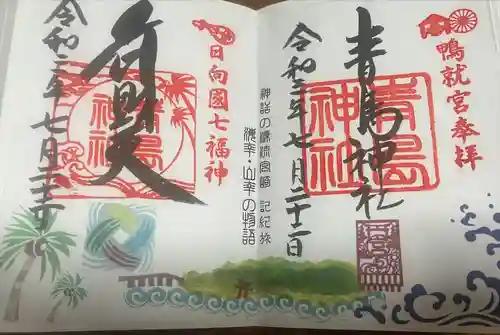 鴨就宮奉拝
青島神社
青島神社
令和二年七月二十二日
神話の源流宮崎 記紀旅
海幸・山幸の物語
日向國七福神
弁財天
青島神社
令和二年七月二十二日